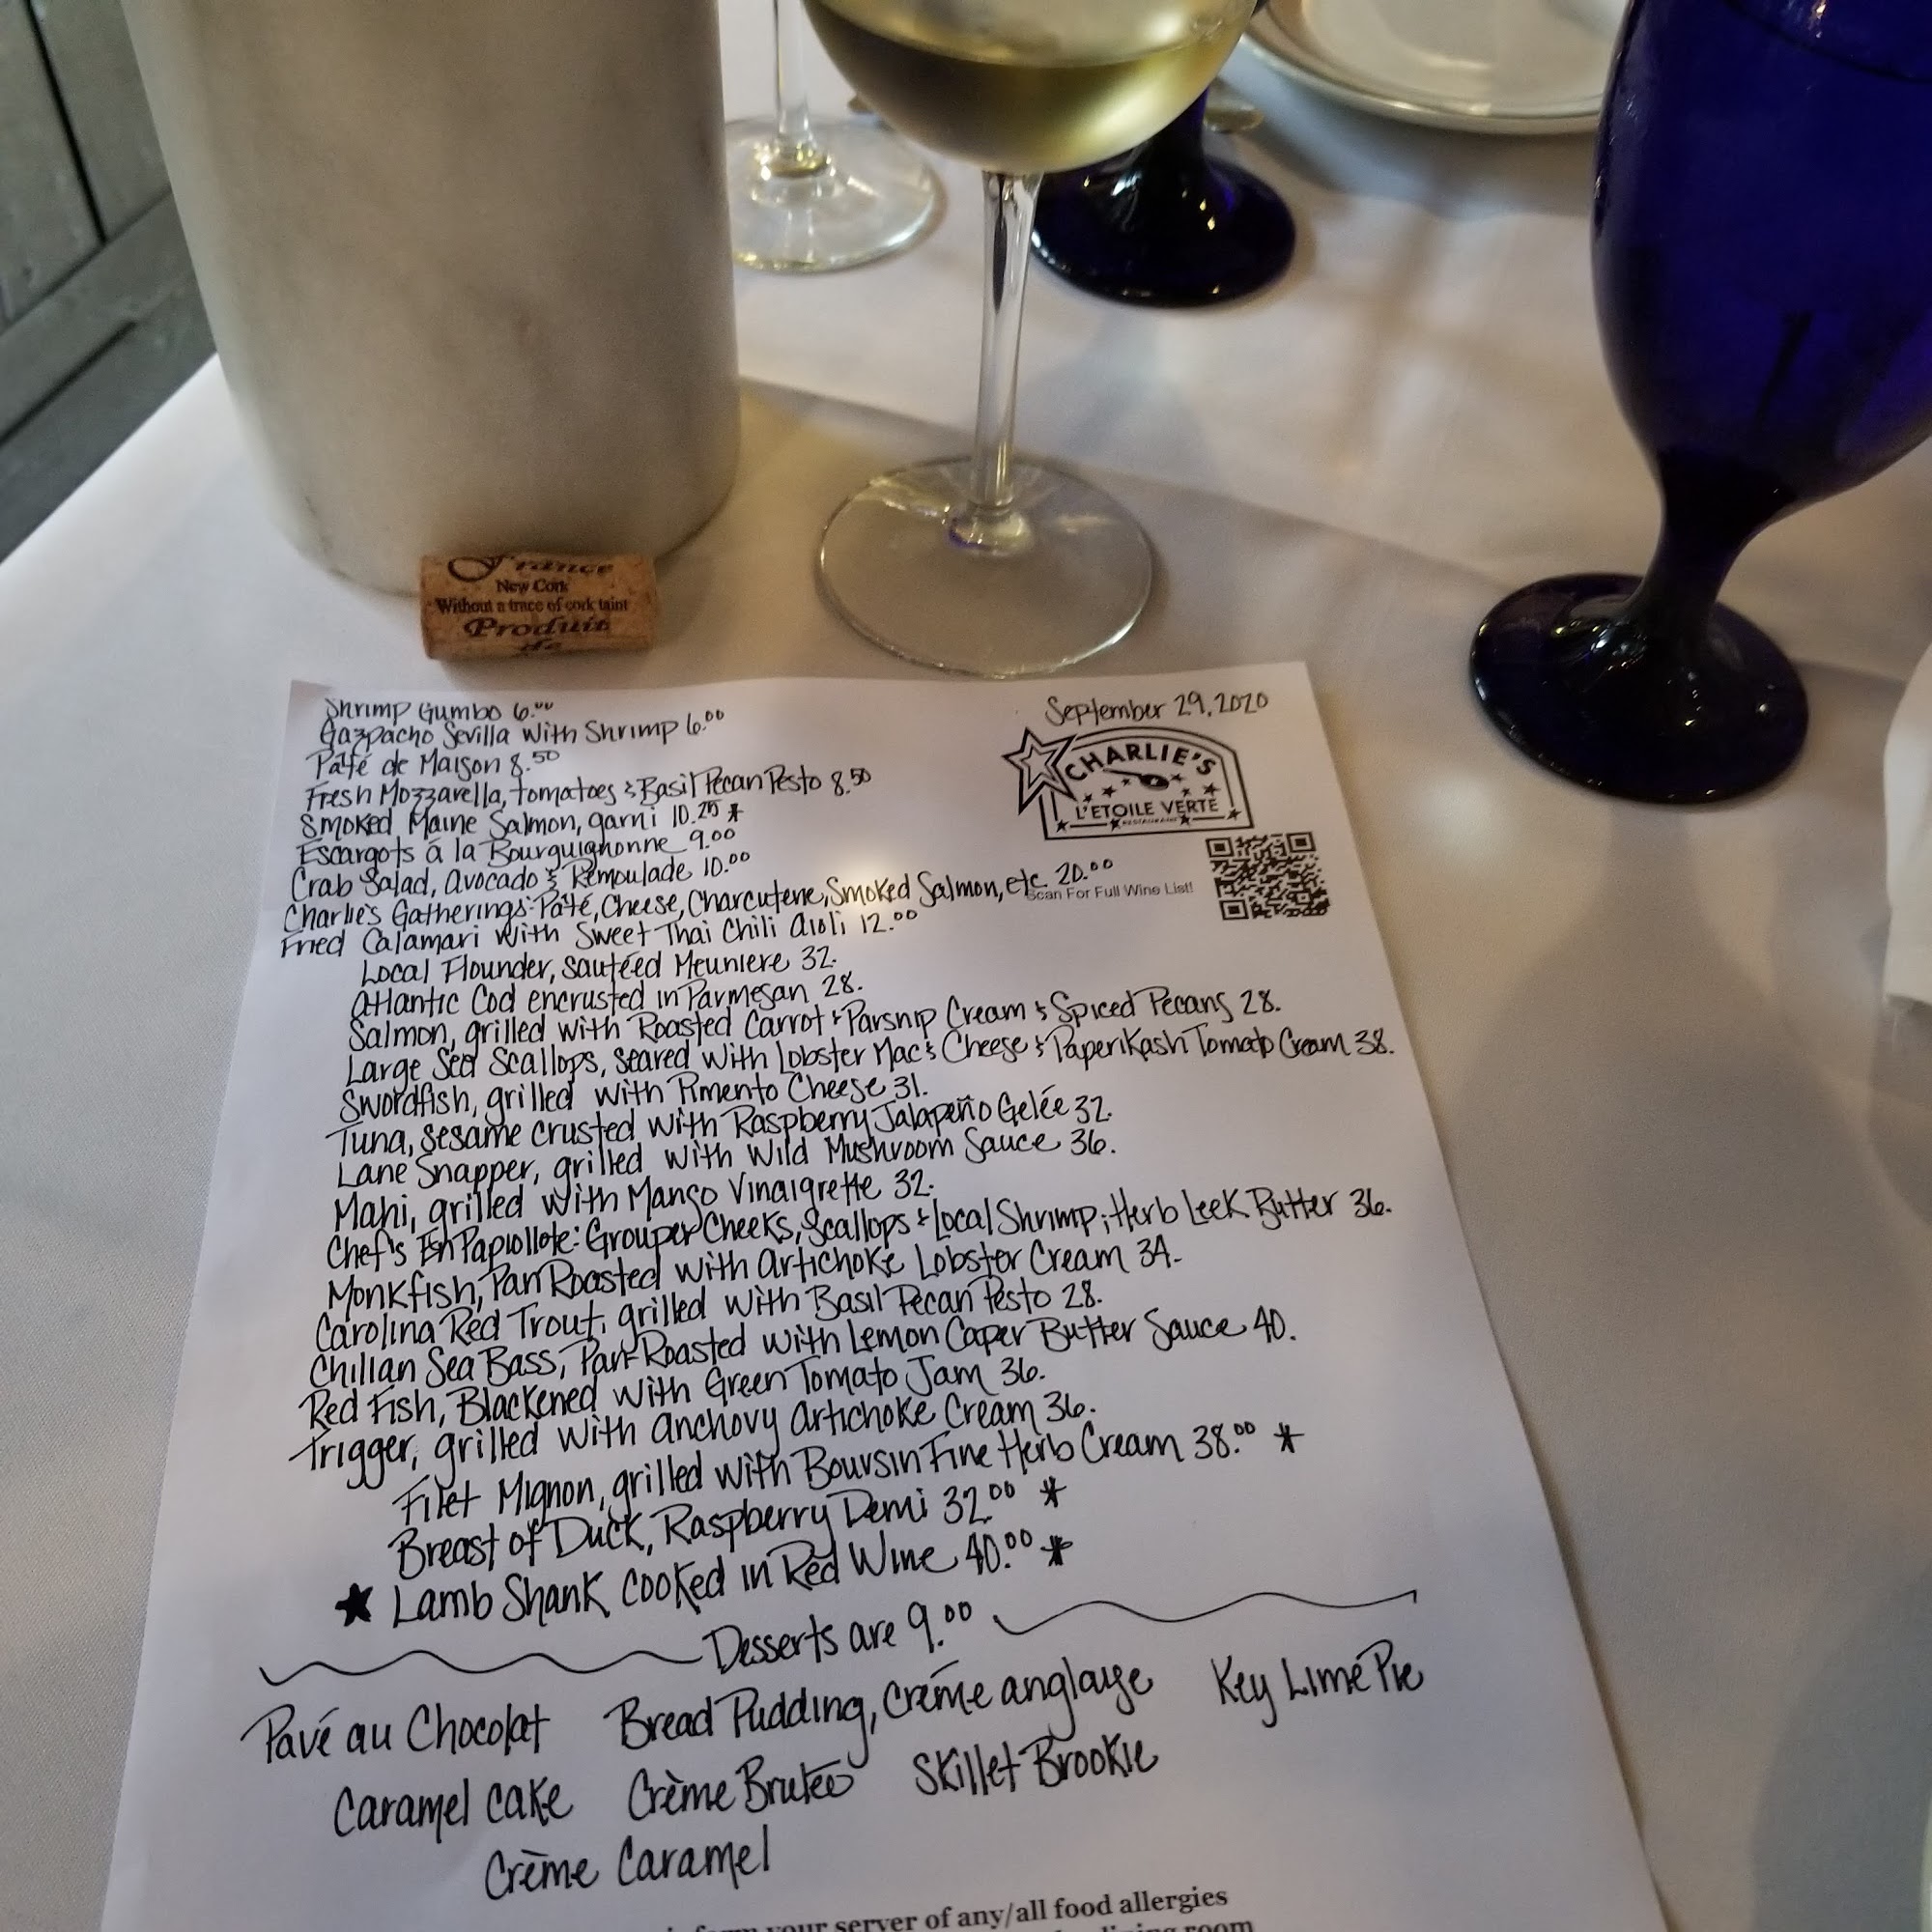 France
New Cork
Without a trace of cork taint
Produit
de
September 29, 2020
CHARLIE'S
L'ETOILE VERTE
RESTAURANT
Scan For Full Wine List!
Shrimp Gumbo 6.00
Gazpacho Sevilla with Shrimp 6.00
Pâté de Maison 8.50
Fresh Mozzarella, tomatoes & Basil Pecan Pesto 8.50
Smoked Maine Salmon, garni 10.25 *
Escargots à la Bourguignonne 9.00
Crab Salad, avocado & Remoulade 10.00
Charlie's Gatherings: Pâté, Cheese, Charcuterie, Smoked Salmon, etc. 20.00
Fried Calamari with Sweet Thai Chili aioli 12.00
Local Flounder, sautéed Meuniere 32.
Atlantic Cod encrusted in Parmesan 28.
Salmon, grilled with Roasted Carrot & Parsnip Cream & Spiced Pecans 28.
Large Sea Scallops, seared with Lobster Mac & Cheese & Paperikash Tomato Cream 38.
Swordfish, grilled with Pimento Cheese 31.
Tuna, sesame crusted with Raspberry Jalapeño Gelée 32.
Lane Snapper, grilled with Wild Mushroom Sauce 36.
Mahi, grilled with Mango Vinaigrette 32.
Chef's En Papiollote: Grouper Cheeks, Scallops & Local Shrimp; Herb Leek Butter 36.
Monkfish, Pan Roasted with Artichoke Lobster Cream 34.
Carolina Red Trout, grilled with Basil Pecan Pesto 28.
Chilian Sea Bass, Pan-Roasted with Lemon Caper Butter Sauce 40.
Red Fish, Blackened with Green Tomato Jam 36.
Trigger, grilled with Anchovy Artichoke Cream 36.
Filet Mignon, grilled with Boursin Fine Herb Cream 38.00 *
Breast of Duck, Raspberry Demi 32.00 *
★ Lamb Shank cooked in Red Wine 40.00 *
Desserts are 9.00
Pavé au Chocolat Bread Pudding, Crème anglaise Key Lime Pie
Caramel cake Crème Brulée Skillet Brookie
Crème Caramel
your server of any/all food allergies
dining room